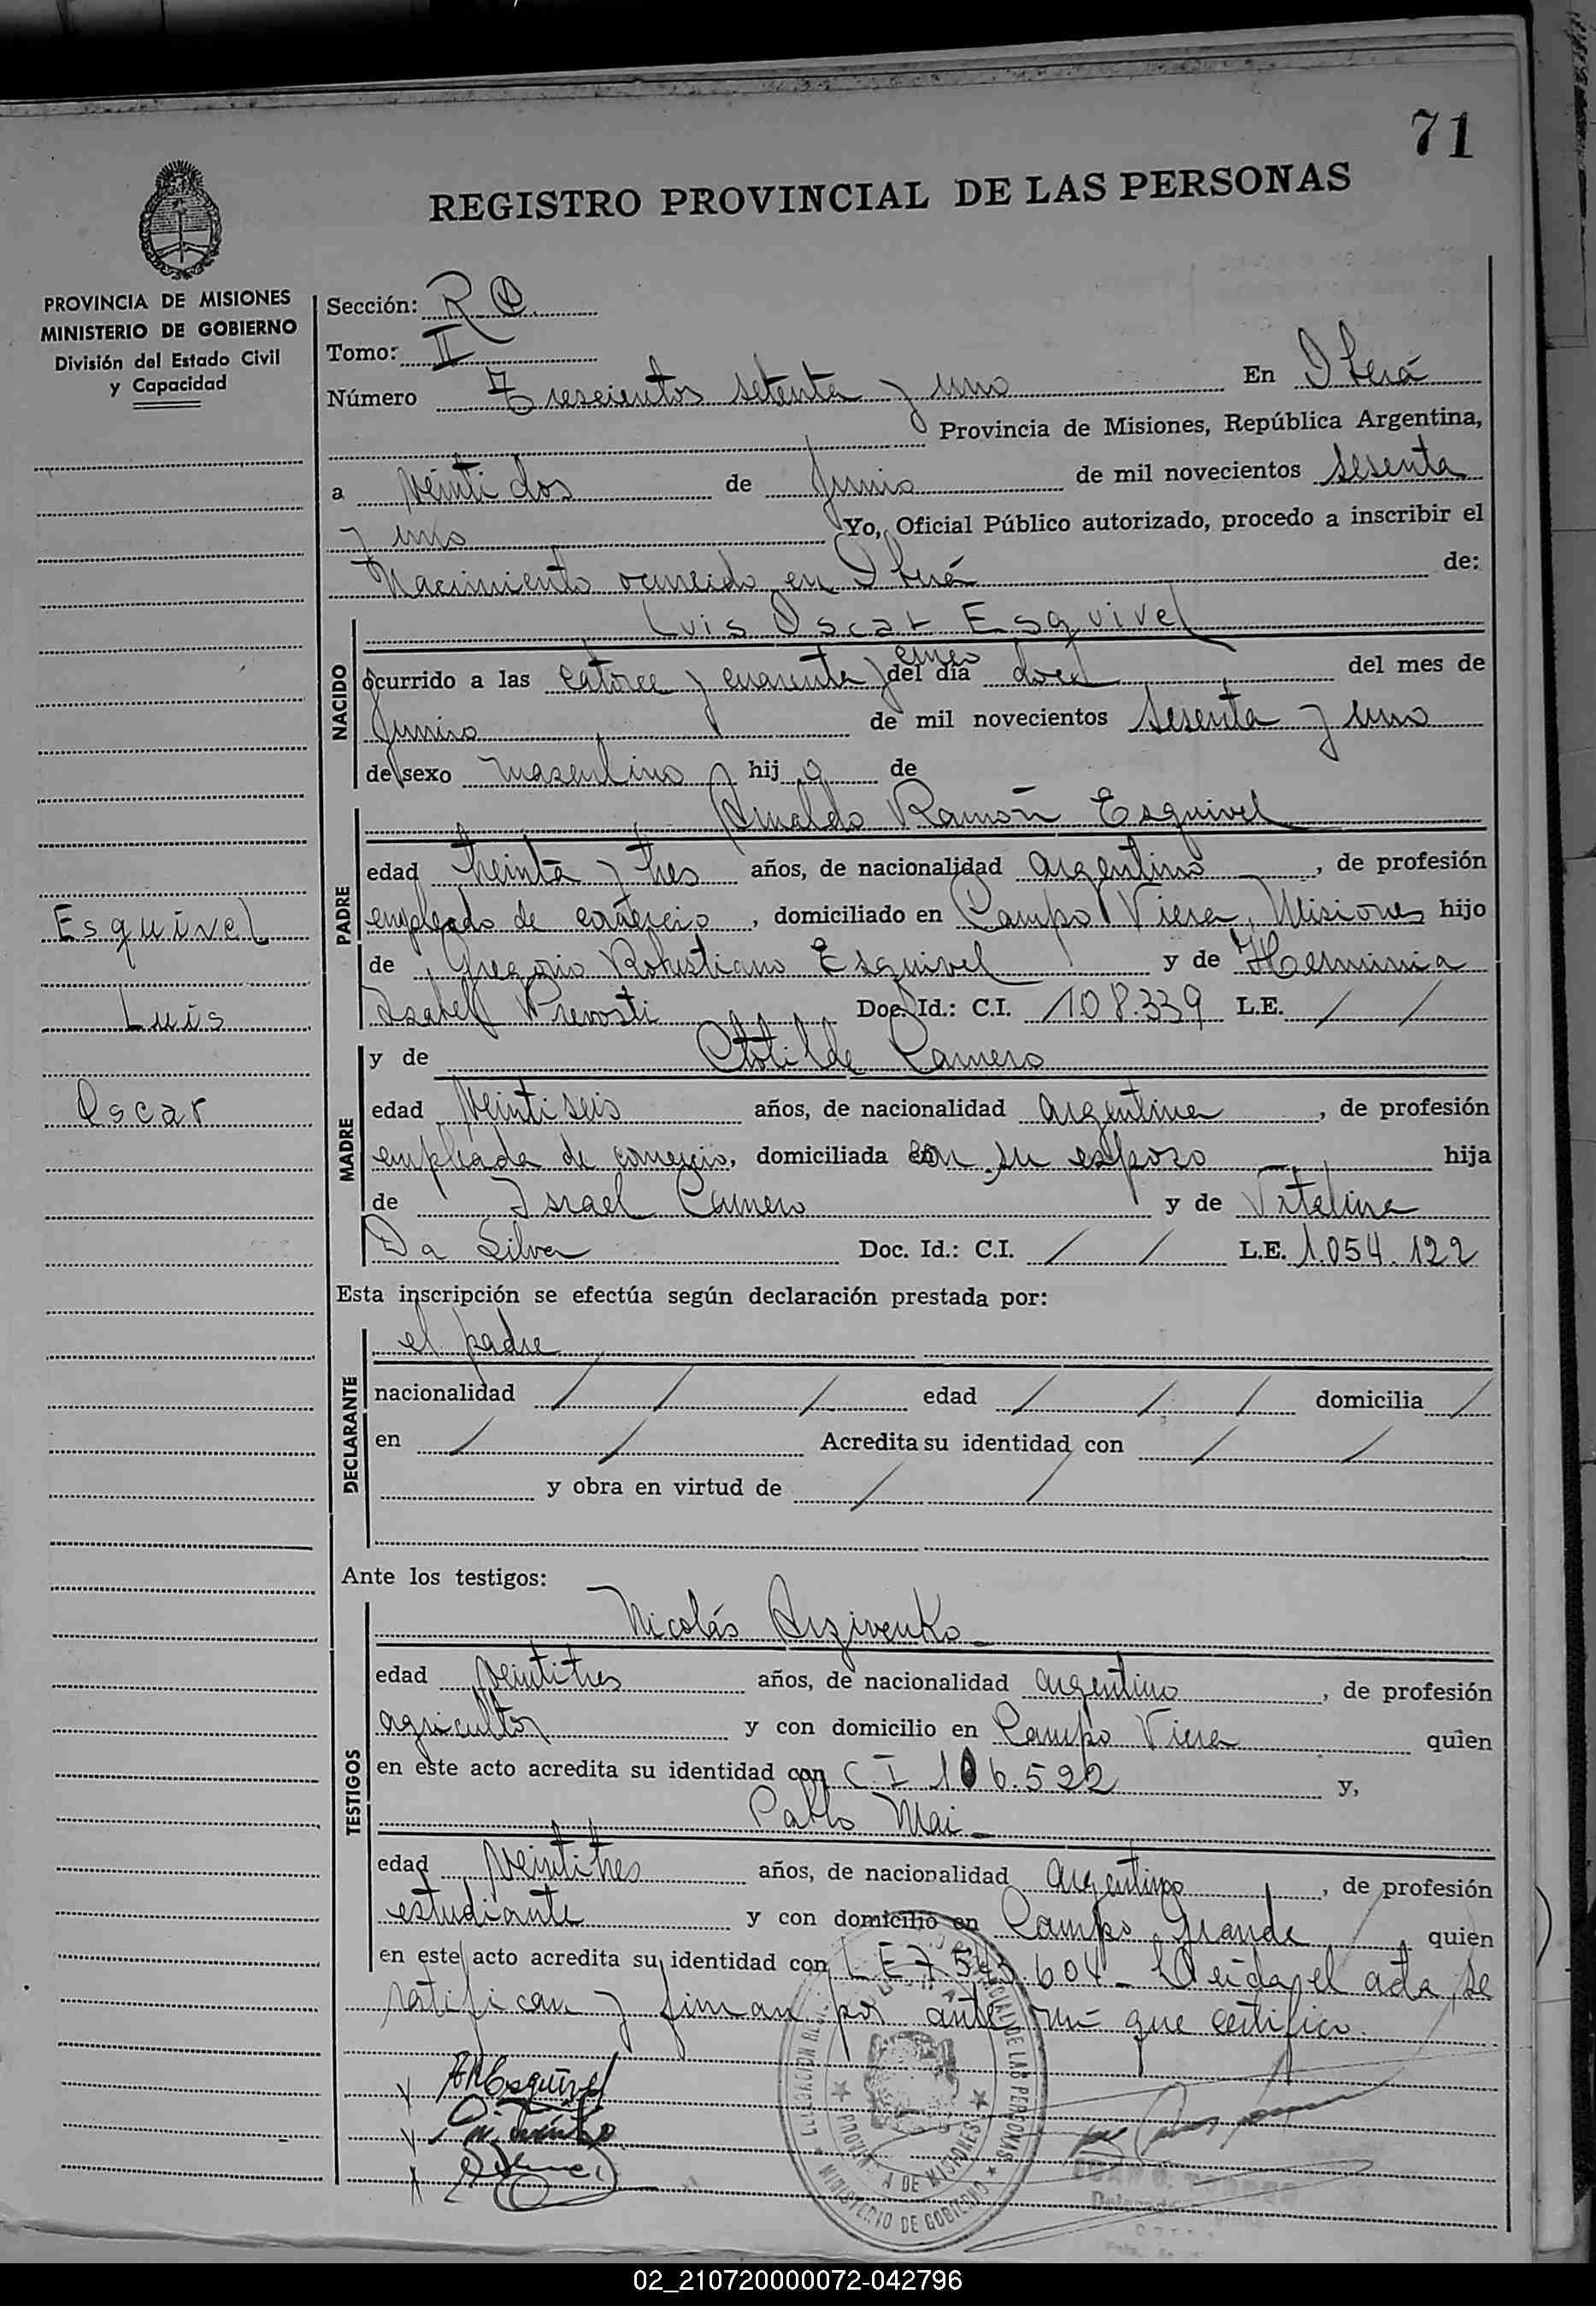 71
REGISTRO PROVINCIAL DE LAS PERSONAS
PROVINCIA DE MISIONES
MINISTERIO DE GOBIERNO
División del Estado Civil
y Capacidad
Esquivel
Luis
Oscar
Sección: R C.
Tomo: II
Número Trescientos setenta y uno En Oberá
Provincia de Misiones, República Argentina,
a veinti dos de Junio de mil novecientos sesenta
y uno Yo, Oficial Público autorizado, procedo a inscribir el
Nacimiento ocurrido en Oberá de:
NACIDO
Luis Oscar Esquivel
ocurrido a las catorce y cuarenta y cinco del día doce del mes de
Junio de mil novecientos sesenta y uno
de sexo masculino hij o de
PADRE
Arnaldo Ramón Esquivel
edad treinta y tres años, de nacionalidad argentino, de profesión
empleado de comercio, domiciliado en Campo Viera, Misiones hijo
de Gregorio Robustiano Esquivel y de Herminia
Isabel Prevosti Doc. Id.: C.I. 108.339 L.E. / /
MADRE
y de Clotilde Carnero
edad veinti seis años, de nacionalidad argentina, de profesión
empleada de comercio, domiciliada con su esposo hija
de Israel Carnero y de Vitalina
Da Silva Doc. Id.: C.I. / / L.E. 1.054.122
Esta inscripción se efectúa según declaración prestada por:
DECLARANTE
el padre
nacionalidad / / / edad / / / domicilia /
en / / Acredita su identidad con / /
y obra en virtud de / /
Ante los testigos:
TESTIGOS
Nicolás
edad veintitres años, de nacionalidad argentino, de profesión
agricultor y con domicilio en Campo Viera quien
en este acto acredita su identidad con C.I 106.522 y,
Pablo Mai
edad veintitres años, de nacionalidad argentino, de profesión
estudiante y con domicilio en Campo Grande quien
en este acto acredita su identidad con L E 7.543.604 - Leída el acta, se
ratifican y firman por ante mí que certifico.
AREsquivel
PROVINCIA DE MISIONES
MINISTERIO DE GOBIERNO
02_210720000072-042796